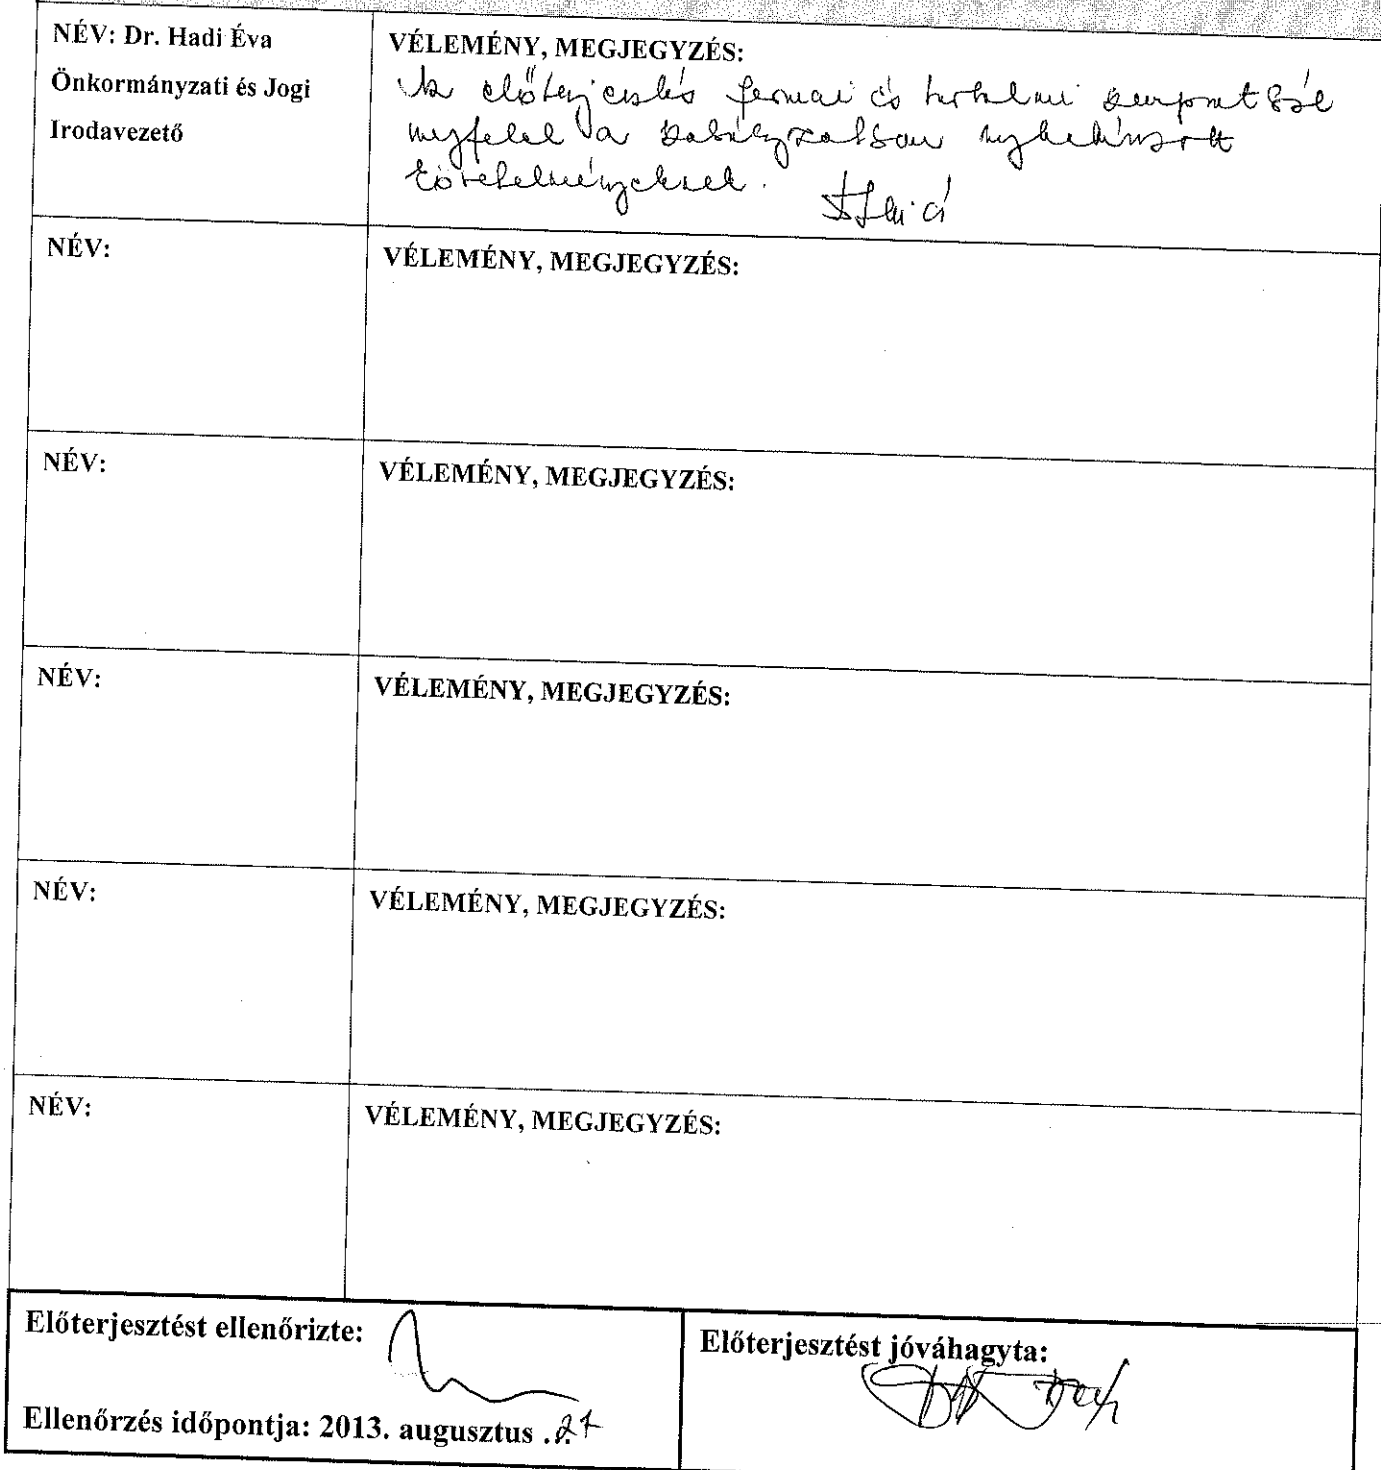 NÉV: Dr. Hadi Éva
Önkormányzati és Jogi
Irodavezető
VÉLEMÉNY, MEGJEGYZÉS:
Az előterjesztés formai és tartalmi szempontból
megfelel a szabályzatban meghatározott
követelményeknek.
NÉV:
VÉLEMÉNY, MEGJEGYZÉS:
NÉV:
VÉLEMÉNY, MEGJEGYZÉS:
NÉV:
VÉLEMÉNY, MEGJEGYZÉS:
NÉV:
VÉLEMÉNY, MEGJEGYZÉS:
NÉV:
VÉLEMÉNY, MEGJEGYZÉS:
Előterjesztést ellenőrizte:
Ellenőrzés időpontja: 2013. augusztus .27
Előterjesztést jóváhagyta: